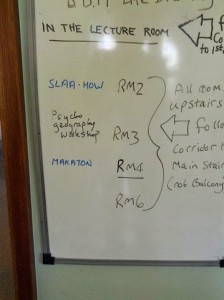 IN THE LECTURE ROOM
to 1st
SLAA-HOW RM2
Psycho
geography
workshop RM3
MAKATON RM4
RM6
All room
upstairs
follo
Corridor t
Main Stair
(not Balcony